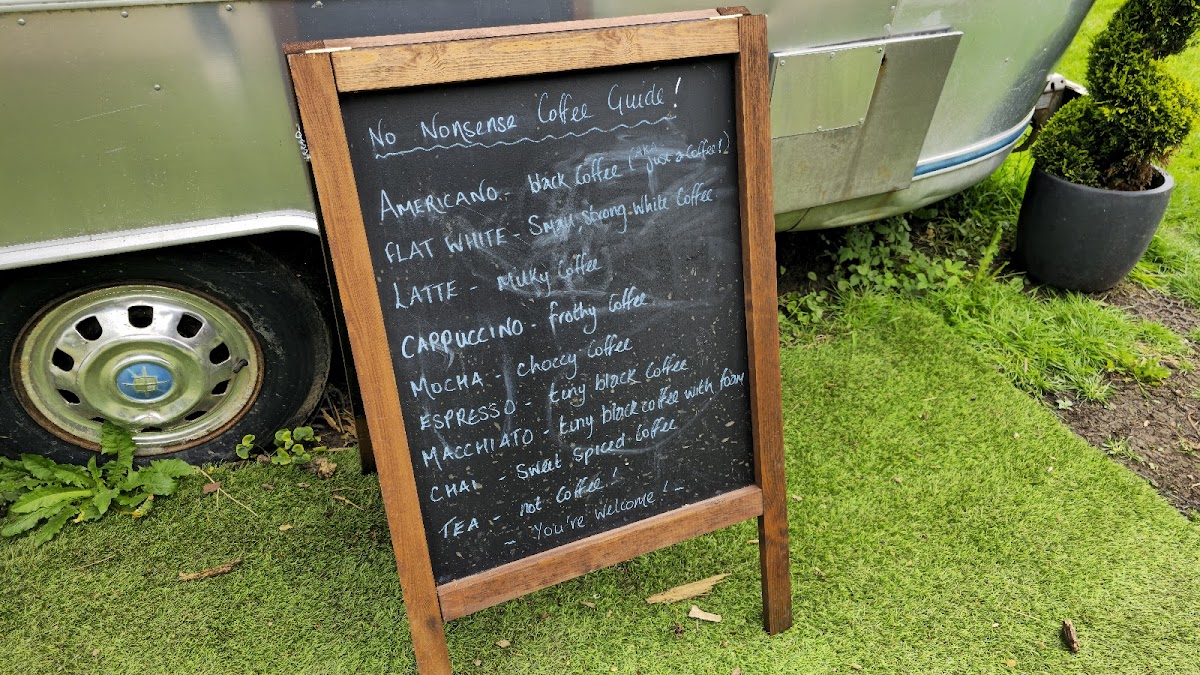 No Nonsense Coffee Guide!
AMERICANO - black coffee (AKA "just a coffee!)
FLAT WHITE - Small, strong white coffee
LATTE - Milky coffee
CAPPUCCINO - frothy coffee
MOCHA - choccy coffee
ESPRESSO - tiny black coffee
MACCHIATO - tiny black coffee with foam
CHAI - Sweet spiced coffee
TEA - not coffee!
- You're welcome! -